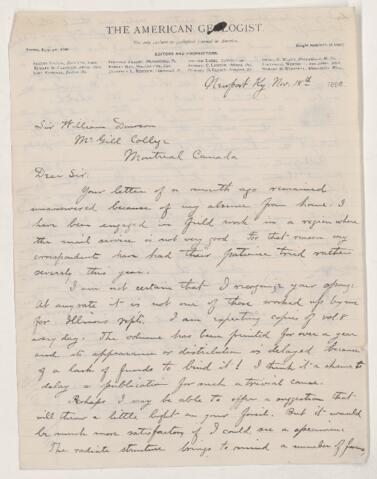 THE AMERICAN GEOLOGIST.
EDITORS AND PROPRIETORS.
Newport Ky Nov. 18th 1890
Sir William Dawson
McGill College
Montreal Canada
Dear Sir.
Your letter of a month ago remained
unanswered because of my absence from home. I
have been engaged in field work in a region where
the mail service is not very good. For that reason my
correspondents have had their patience tried rather
severely this year.
I am not certain that I recognize your sponge.
At any rate it is not one of those worked up by me
for Illinois repts. I am expecting copies of vol 8
every day. The volume has been printed for over a year
and its appearance or distribution is delayed because
of a lack of funds to bind it! I think it a shame to
delay a publication for such a trivial cause.
Perhaps I may be able to offer a suggestion that
will throw a little light on your fossil. But it would
be much more satisfactory if I could see a specimen.
The radiate structure brings to mind a number of forms